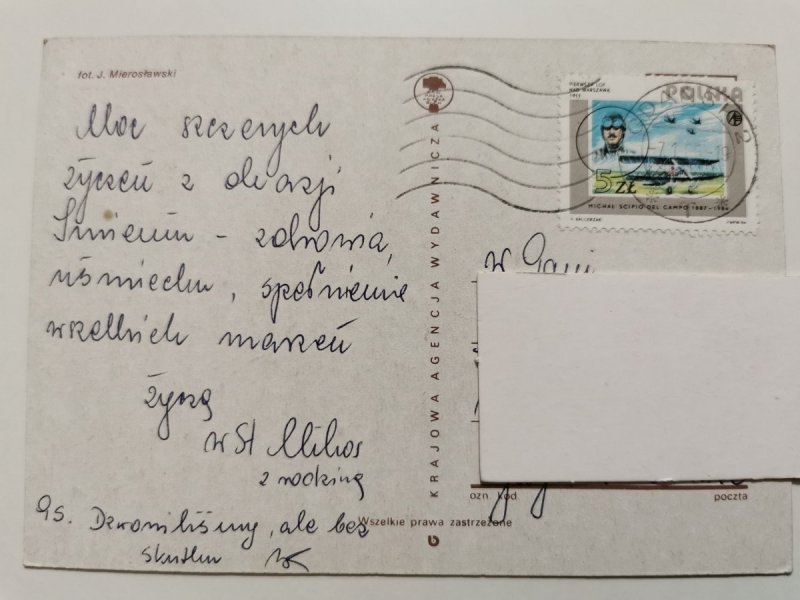 fot. J. Mierosławski
Moc szczerych
życzeń z okazji
Imienin - zdrowia,
uśmiechu, spełnienia
wszelkich marzeń
życzą
z rodziną
Dzwoniliśmy, ale bez
skutku
KRAJOWA AGENCJA WYDAWNICZA
Wszelkie prawa zastrzeżone
PIERWSZY LOT
NAD WARSZAWĄ
1911
POLSKA
5 ZŁ
MICHAŁ SCIPIO DEL CAMPO 1887-1984
W
ozn. kod.
poczta